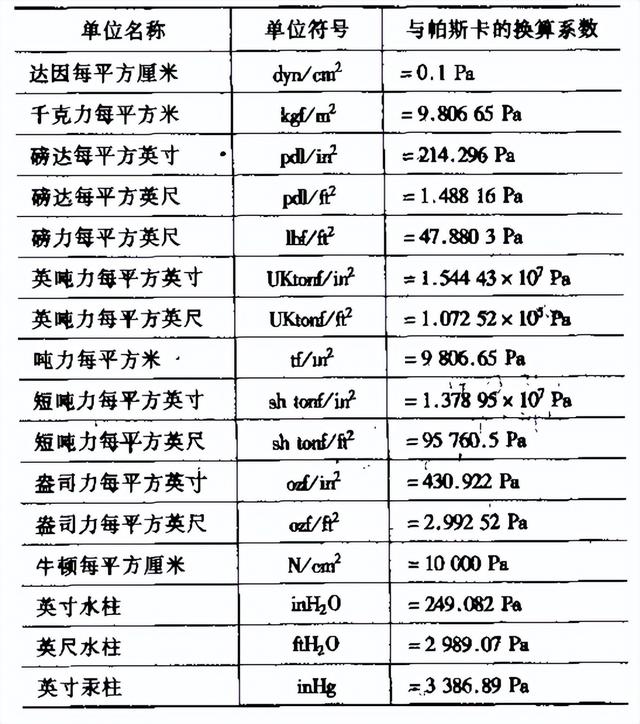 单位名称 单位符号 与帕斯卡的换算系数
达因每平方厘米 dyn/cm² =0.1 Pa
千克力每平方米 kgf/m² =9.806 65 Pa
磅达每平方英寸 pdl/in² =214.296 Pa
磅达每平方英尺 pdl/ft² =1.488 16 Pa
磅力每平方英尺 lbf/ft² =47.880 3 Pa
英吨力每平方英寸 UKtonf/in² =1.544 43×10⁷ Pa
英吨力每平方英尺 UKtonf/ft² =1.072 52×10⁵ Pa
吨力每平方米 tf/m² =9 806.65 Pa
短吨力每平方英寸 sh tonf/in² =1.378 95×10⁷ Pa
短吨力每平方英尺 sh tonf/ft² =95 760.5 Pa
盎司力每平方英寸 ozf/in² =430.922 Pa
盎司力每平方英尺 ozf/ft² =2.992 52 Pa
牛顿每平方厘米 N/cm² =10 000 Pa
英寸水柱 inH₂O =249.082 Pa
英尺水柱 ftH₂O =2 989.07 Pa
英寸汞柱 inHg =3 386.89 Pa